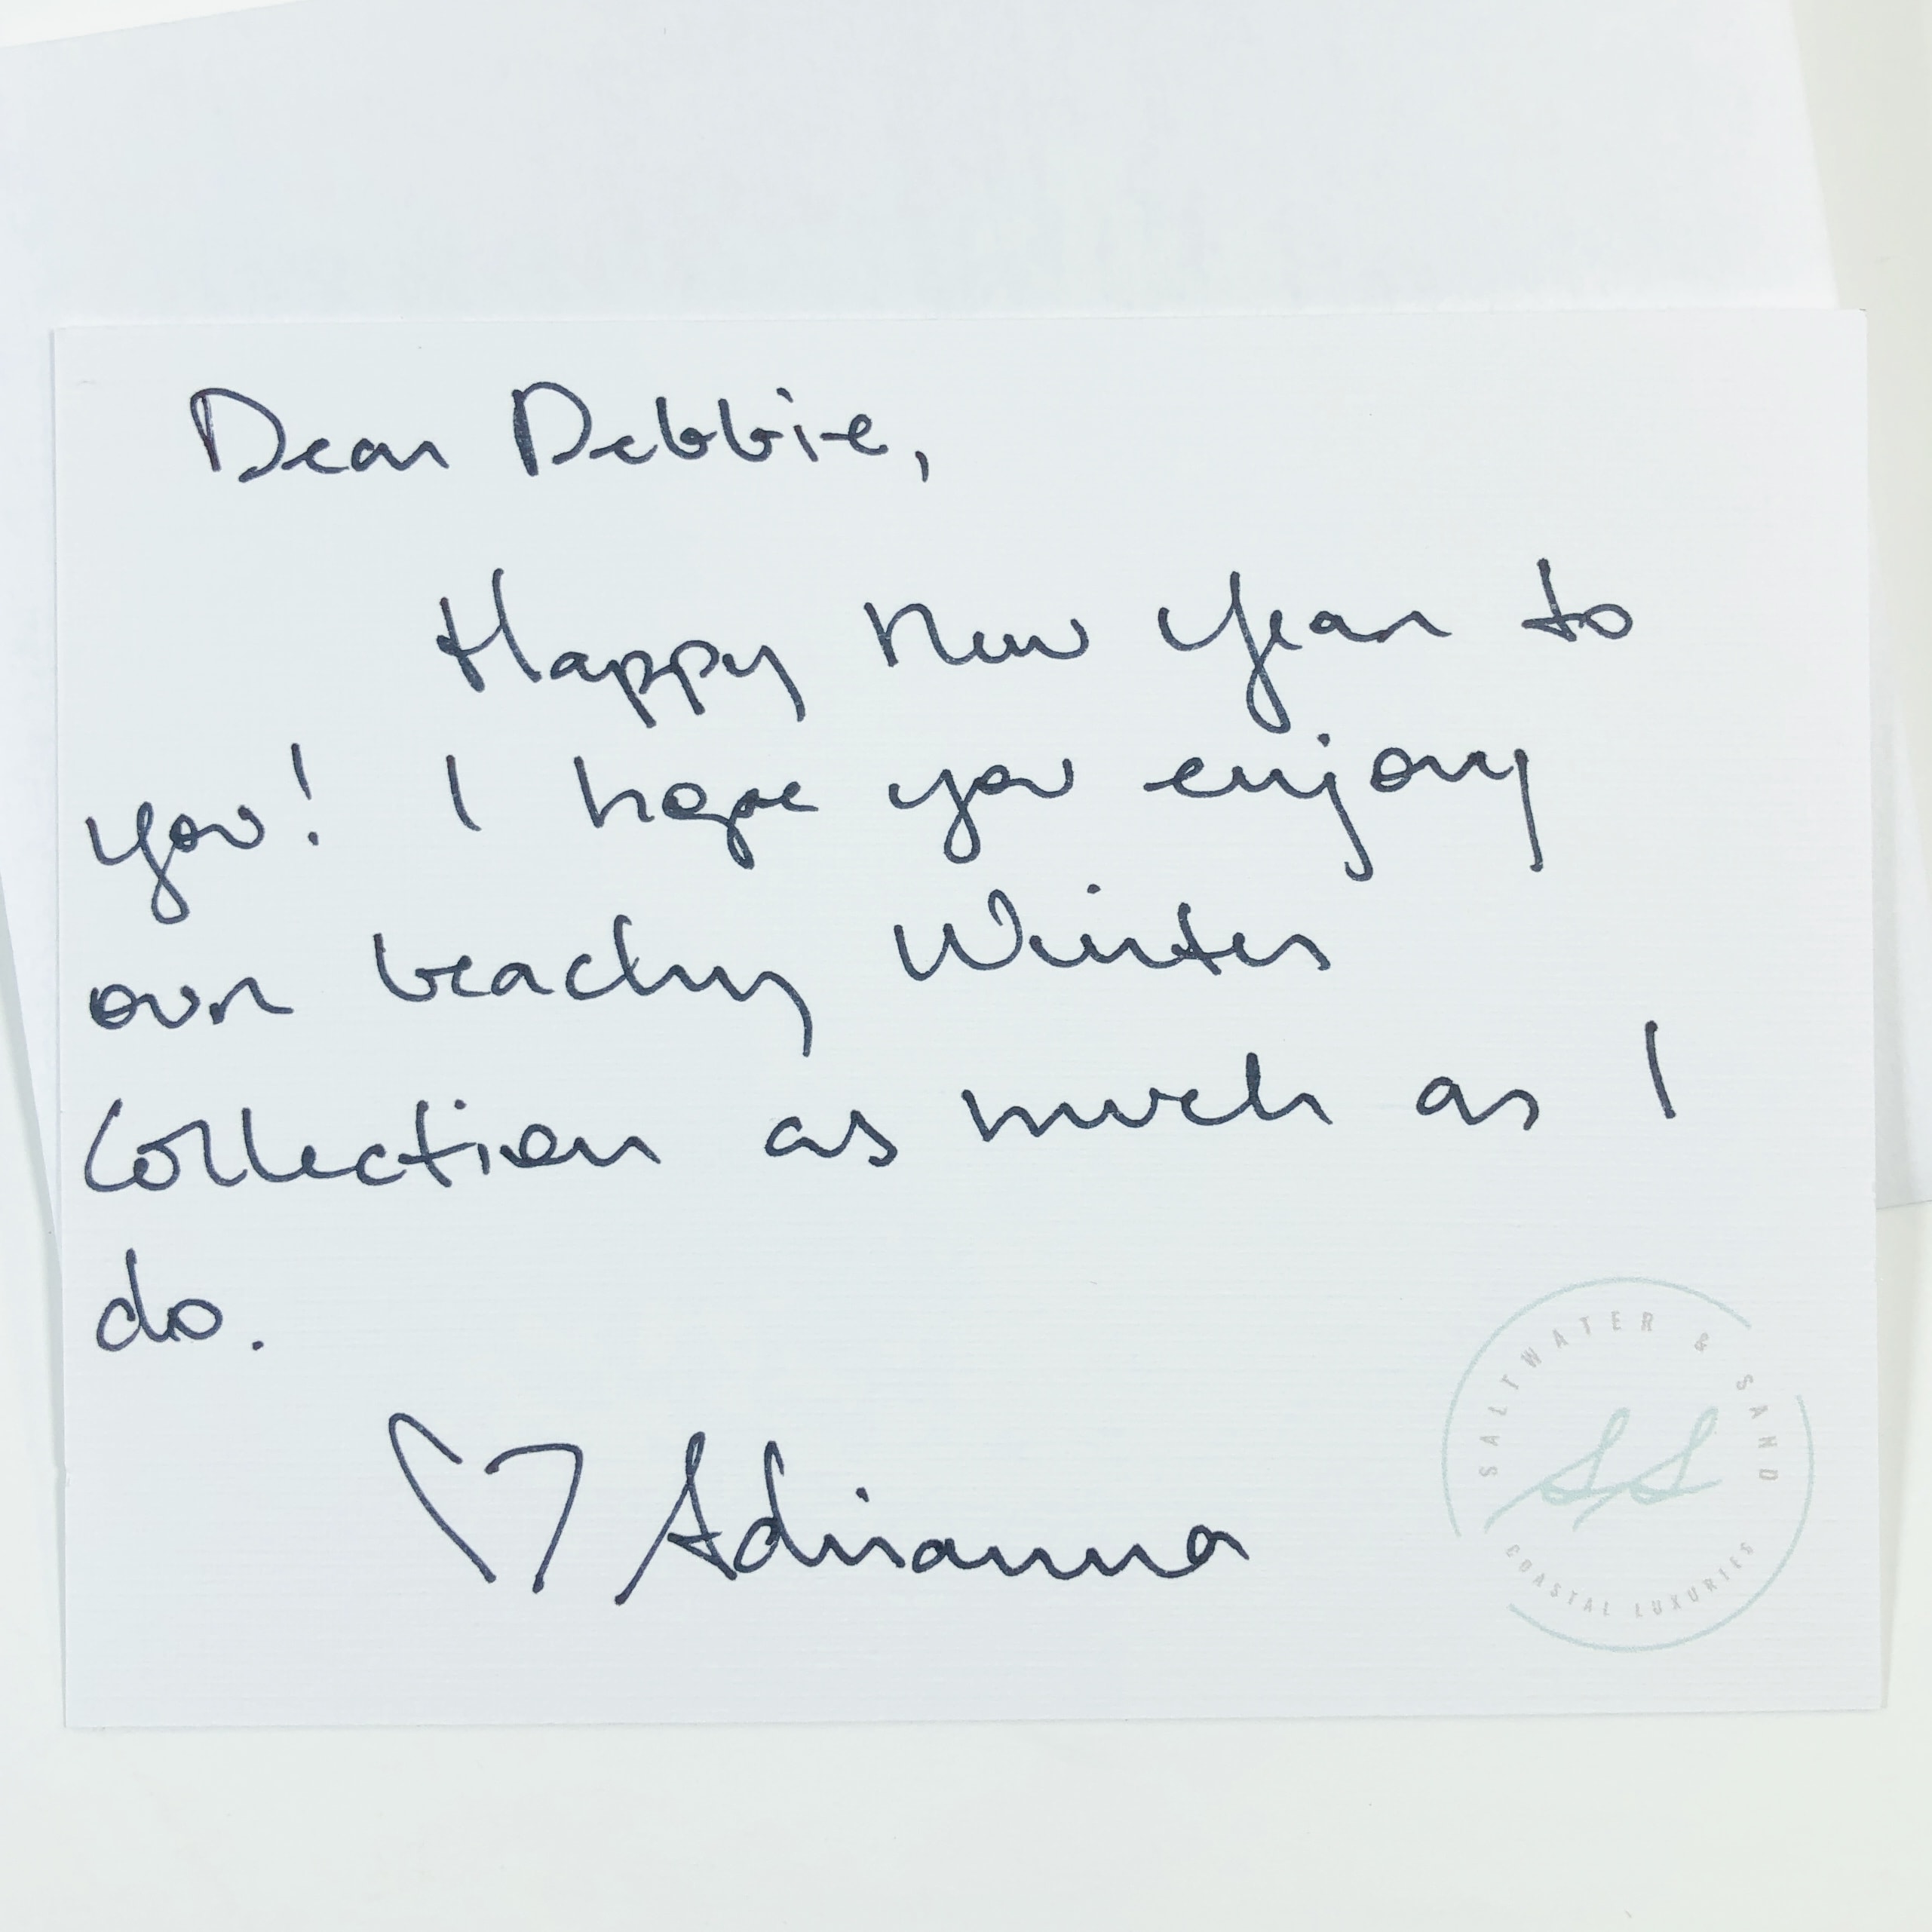 Dear Debbie,
Happy New Year to
you! I hope you enjoy
our beachy Winter
Collection as much as I
do.
♡ Adrianna
SALTWATER & SAND
SS
COASTAL LUXURIES